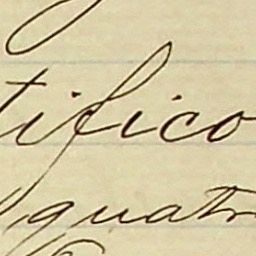 tifico
quatr